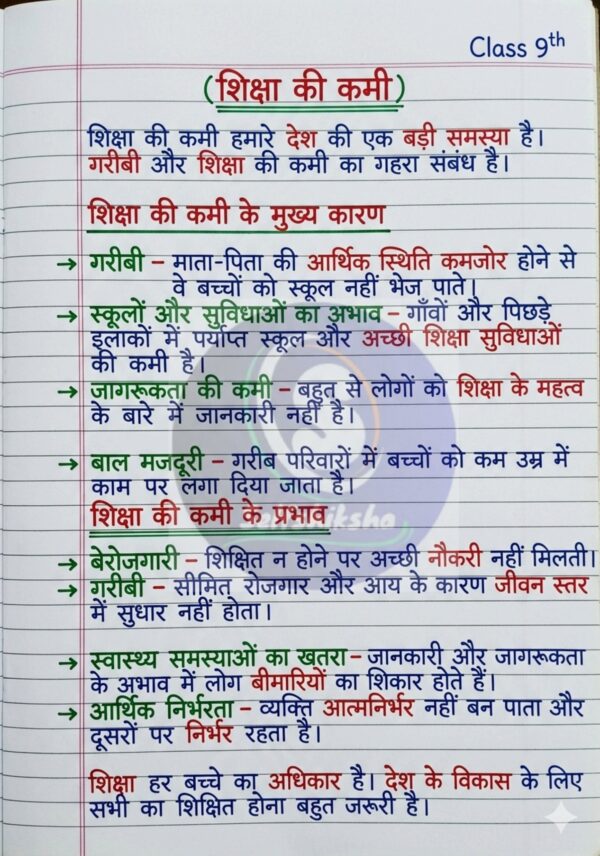 Class 9th
(शिक्षा की कमी)
शिक्षा की कमी हमारे देश की एक बड़ी समस्या है।
गरीबी और शिक्षा की कमी का गहरा संबंध है।
शिक्षा की कमी के मुख्य कारण
→ गरीबी – माता-पिता की आर्थिक स्थिति कमजोर होने से
वे बच्चों को स्कूल नहीं भेज पाते।
→ स्कूलों और सुविधाओं का अभाव – गाँवों और पिछड़े
इलाकों में पर्याप्त स्कूल और अच्छी शिक्षा सुविधाओं
की कमी है।
→ जागरूकता की कमी – बहुत से लोगों को शिक्षा के महत्व
के बारे में जानकारी नहीं है।
→ बाल मजदूरी – गरीब परिवारों में बच्चों को कम उम्र में
काम पर लगा दिया जाता है।
शिक्षा की कमी के प्रभाव
→ बेरोजगारी – शिक्षित न होने पर अच्छी नौकरी नहीं मिलती।
→ गरीबी – सीमित रोजगार और आय के कारण जीवन स्तर
में सुधार नहीं होता।
→ स्वास्थ्य समस्याओं का खतरा – जानकारी और जागरूकता
के अभाव में लोग बीमारियों का शिकार होते हैं।
→ आर्थिक निर्भरता – व्यक्ति आत्मनिर्भर नहीं बन पाता और
दूसरों पर निर्भर रहता है।
शिक्षा हर बच्चे का अधिकार है। देश के विकास के लिए
सभी का शिक्षित होना बहुत जरूरी है।